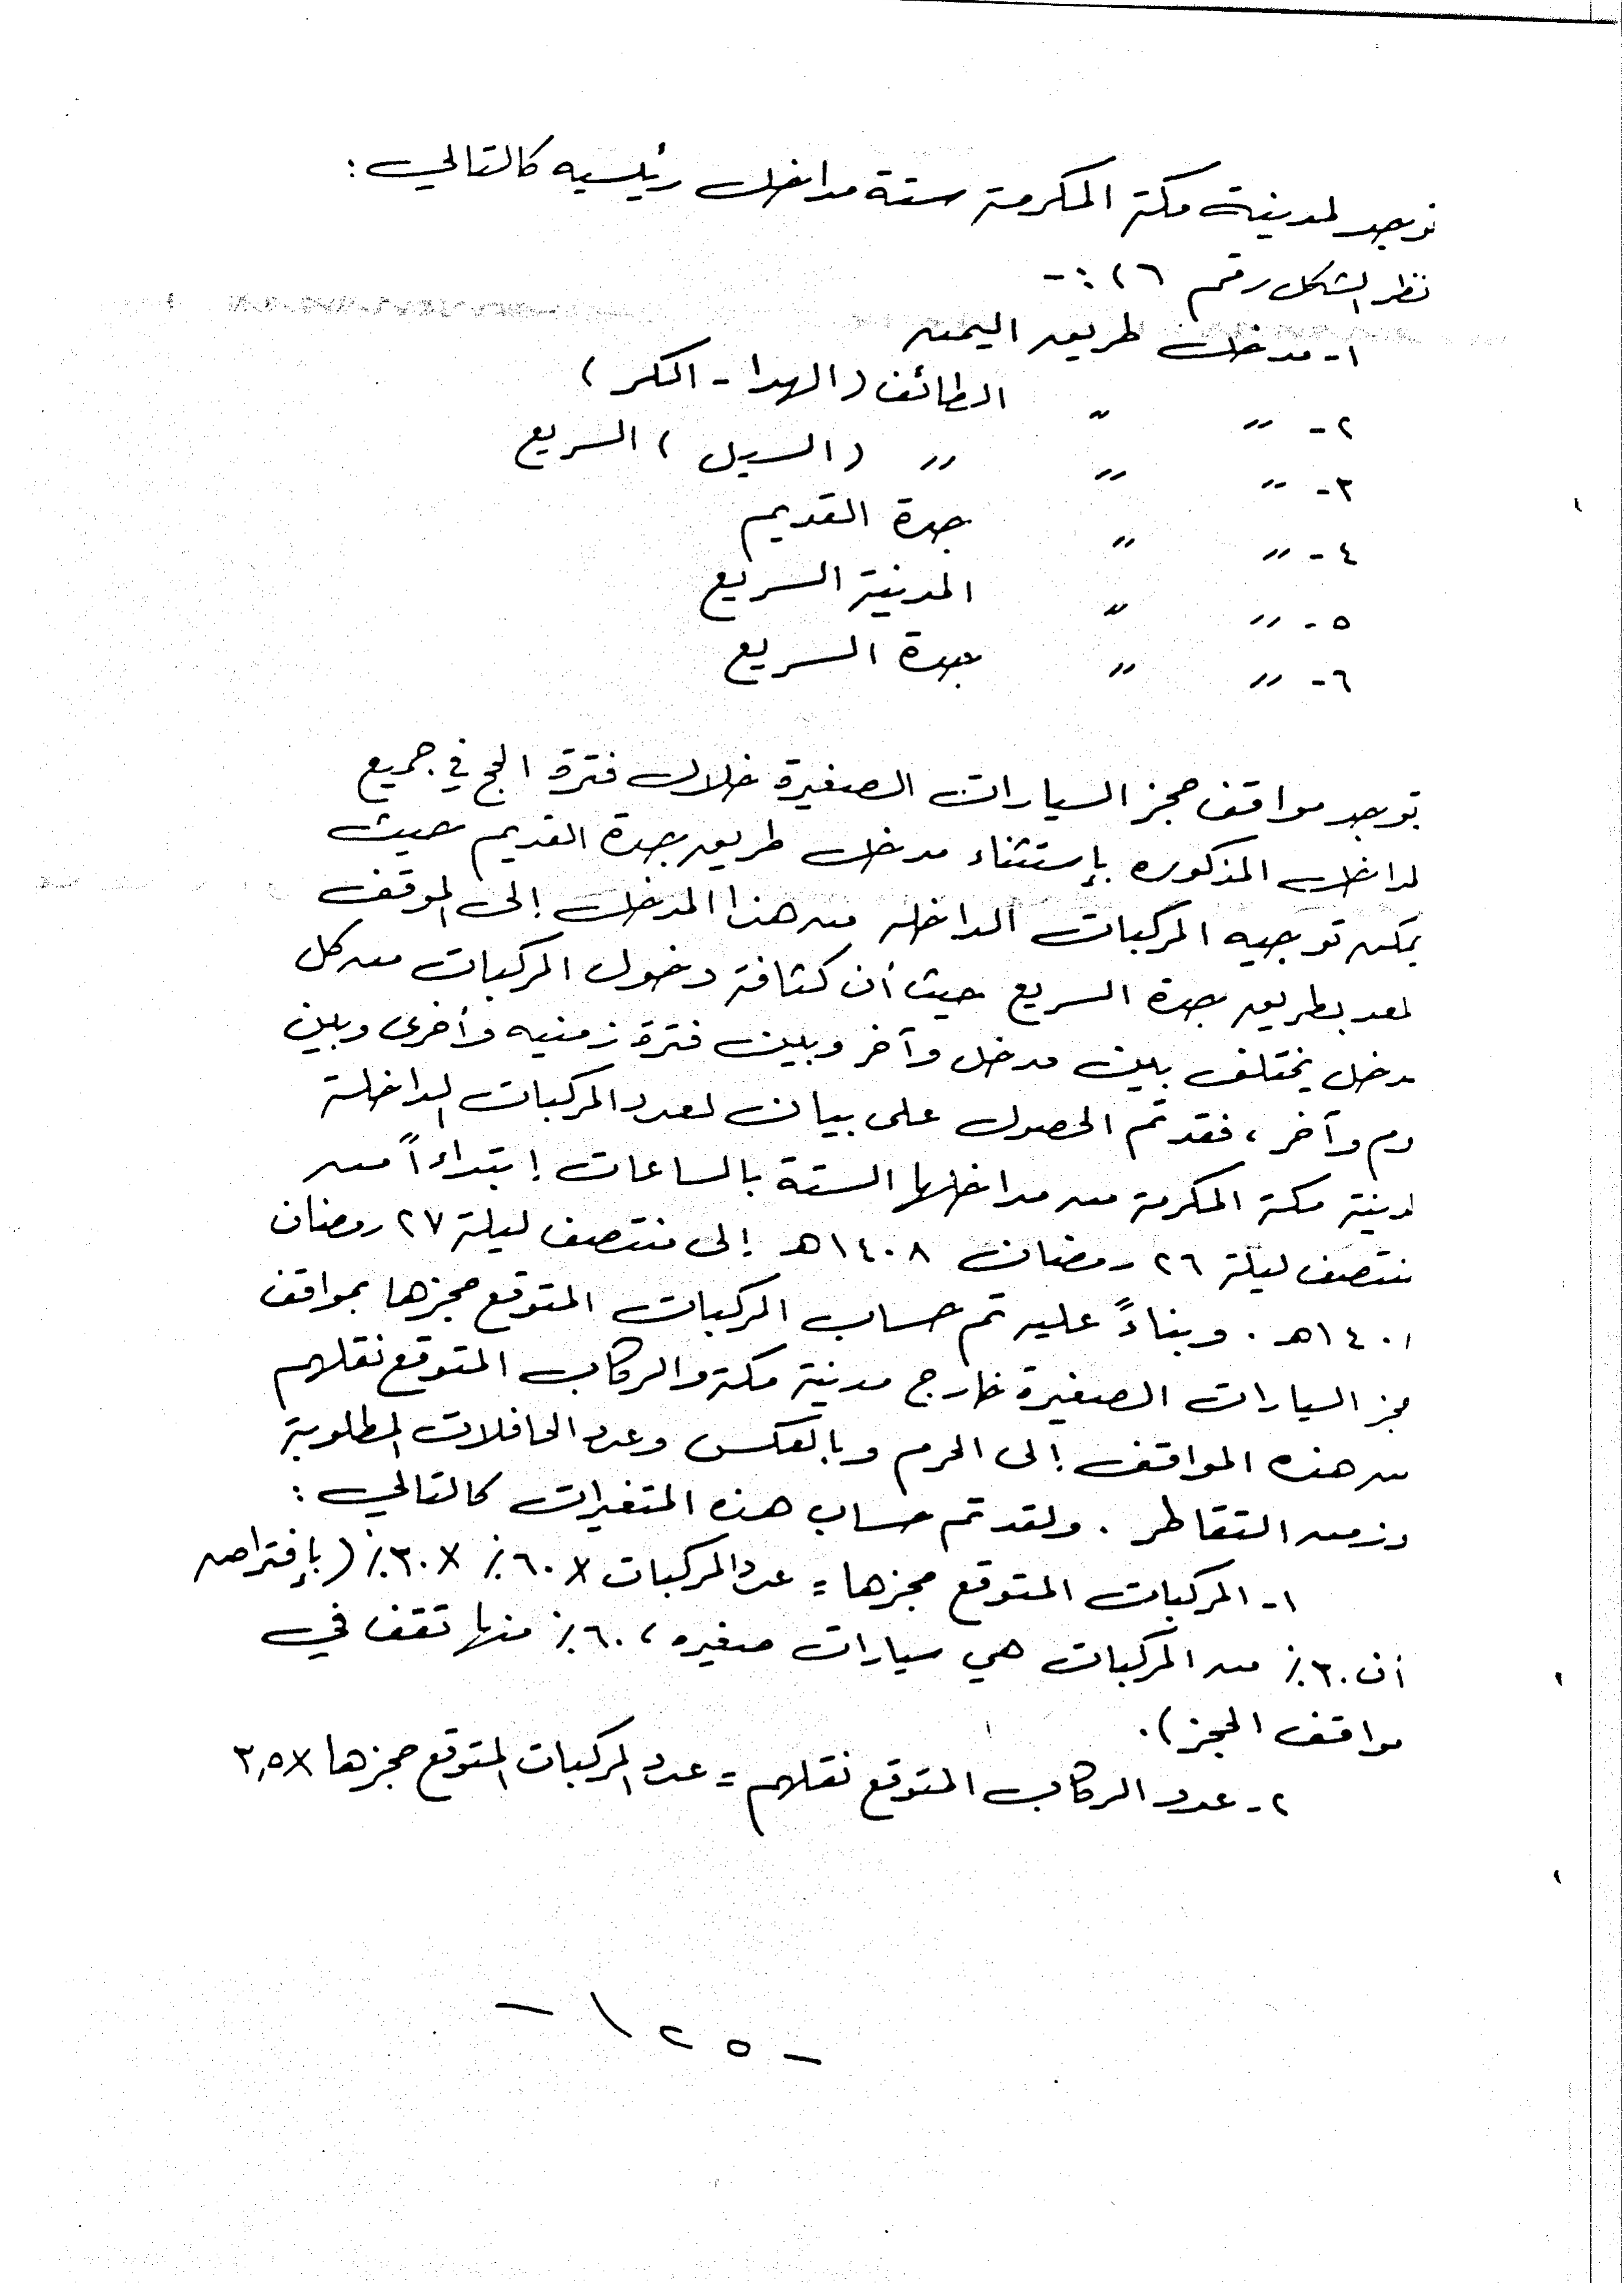 توجد لمدينة مكة المكرمة ستة مداخل رئيسيه كالتالي :
نظر الشكل رقم ١٦ : -
١- مدخل طريق اليمن
٢- " " الطائف ( الهدا - الكر )
٣- " " " ( السيل ) السريع
٤- " " جدة القديم
٥- " " المدينة السريع
٦- " " جدة السريع
توجد مواقف حجز السيارات الصغيرة خلال فترة الحج في جميع
لمداخل المذكوره بإستثناء مدخل طريق جدة القديم حيث
يمكن توجيه المركبات الداخله من هذا المدخل إلى الموقف
لمعد بطريق جدة السريع حيث أن كثافة دخول المركبات من كل
مدخل يختلف بين مدخل وآخر وبين فترة زمنيه وأخرى وبين
وم وآخر ، فقد تم الحصول على بيان لعدد المركبات الداخلة
لمدينة مكة المكرمة من مداخلها الستة بالساعات إبتداءاً من
منتصف ليلة ٢٦ رمضان ١٤٠٨هـ إلى منتصف ليلة ٢٧ رمضان
١٤٠١هـ . وبناءً عليه تم حساب المركبات المتوقع حجزها بمواقف
حجز السيارات الصغيرة خارج مدينة مكة والركاب المتوقع نقلهم
من هذه المواقف إلى الحرم وبالعكس وعدد الحافلات المطلوبة
وزمن التقاطر . ولقد تم حساب هذه المتغيرات كالتالي :
١- المركبات المتوقع حجزها = عدد المركبات × ٦٠٪ × ٣٠٪ ( بإفتراض
أن ٣٠٪ من المركبات هي سيارات صغيره ، ٦٠٪ منها تقف في
مواقف الحجز ) .
٢- عدد الركاب المتوقع نقلهم = عدد المركبات المتوقع حجزها × ٣,٥
- ١٢٥ -